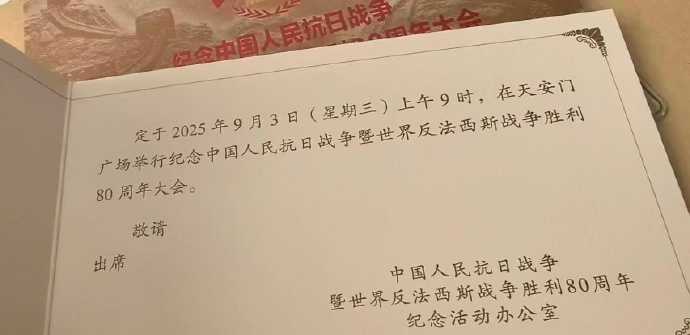 纪念中国人民抗日战争
80周年大会
定于2025年9月3日（星期三）上午9时，在天安门
广场举行纪念中国人民抗日战争暨世界反法西斯战争胜利
80周年大会。
敬请
出席
中国人民抗日战争
暨世界反法西斯战争胜利80周年
纪念活动办公室